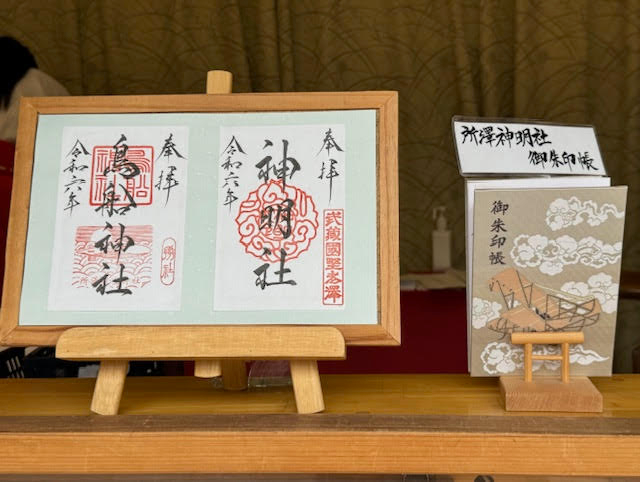 奉拝
神明社
令和六年
武蔵國野老澤
奉拝
鳥船神社
令和六年
摂社
所澤神明社
御朱印帳
御朱印帳